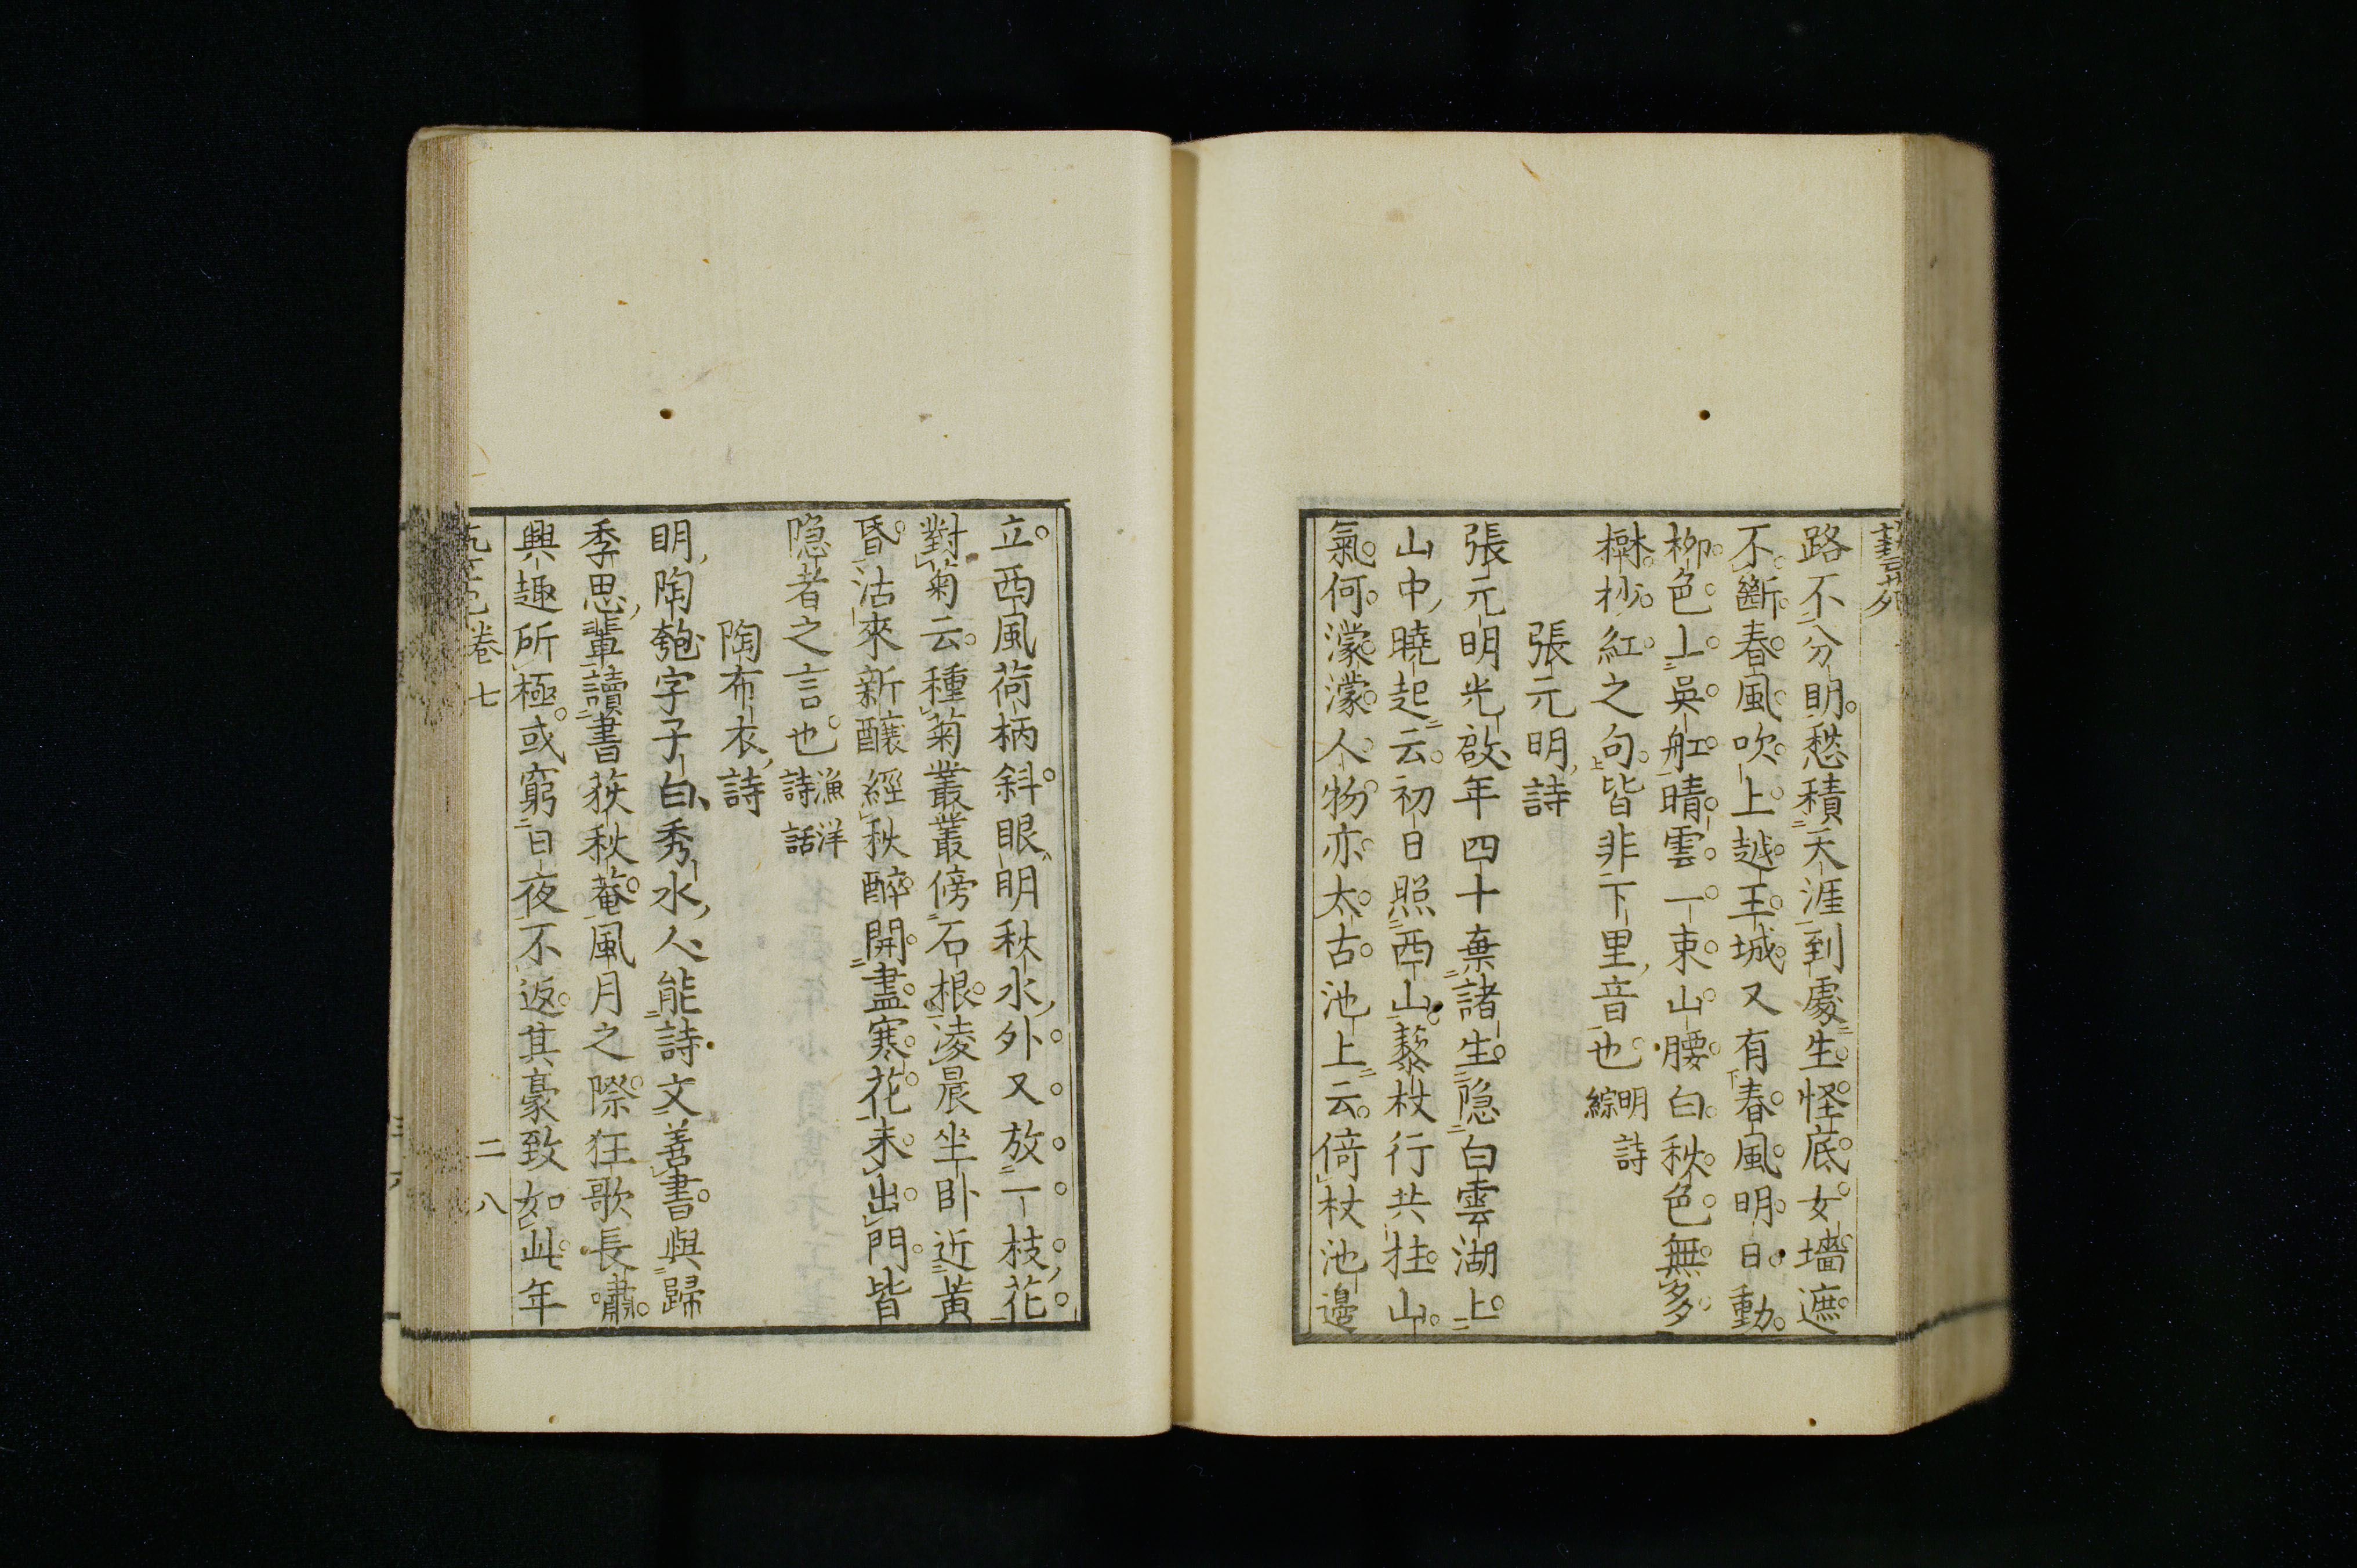 藝苑
路不分明愁積天涯到處生怪底女墻遮
不斷春風吹上越王城又有春風明日動
柳色上吳舡晴雲一束山腰白秋色無多
樹杪紅之句皆非下里音也明詩綜
張元明詩
張元明光啟年四十棄諸生隐白雲湖上
山中曉起云初日照西山藜杖行共拄山
氣何濛濛人物亦太古池上云倚杖池邊
立西風荷柄斜眼明秋水外又放一枝花
對菊云種菊叢叢傍石根凌晨坐卧近黃
昏沽來新釀經秋醉開盡寒花未出門皆
隐者之言也漁洋詩話
陶布衣詩
明陶匏字子白秀水人能詩文善書與歸
季思輩讀書荻秋菴風月之際狂歌長嘯
興趣所極或窮日夜不返其豪致如此年
卷七
二八